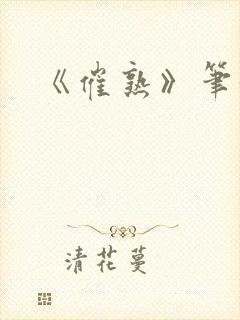 《催熟》筆
清花蔓